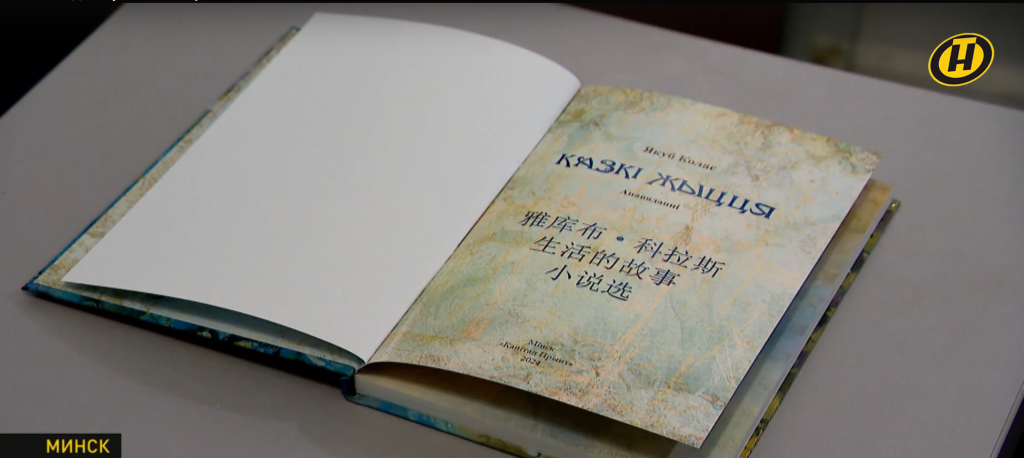 Якуб Колас
КАЗКІ ЖЫЦЦЯ
Апавяданні
雅库布·科拉斯
生活的故事
小说选
Мінск
«Капітал Прынт»
2024
МИНСК